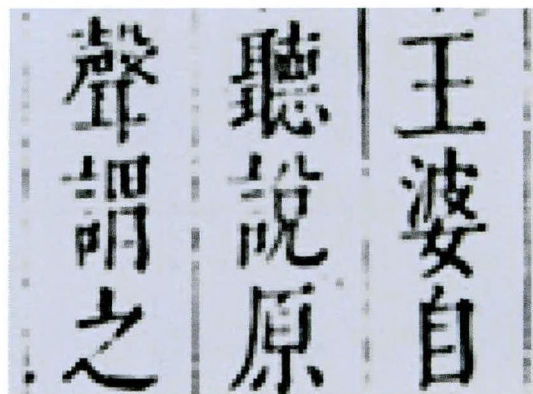 王婆自
聽說原
聲謂之